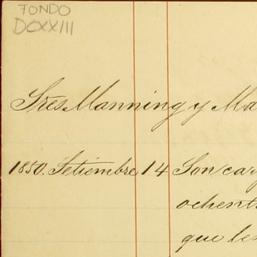 TONDO
DCXXIII
Sres Manning y Ma
1850. Setiembre 14 Son car
ochent
que les